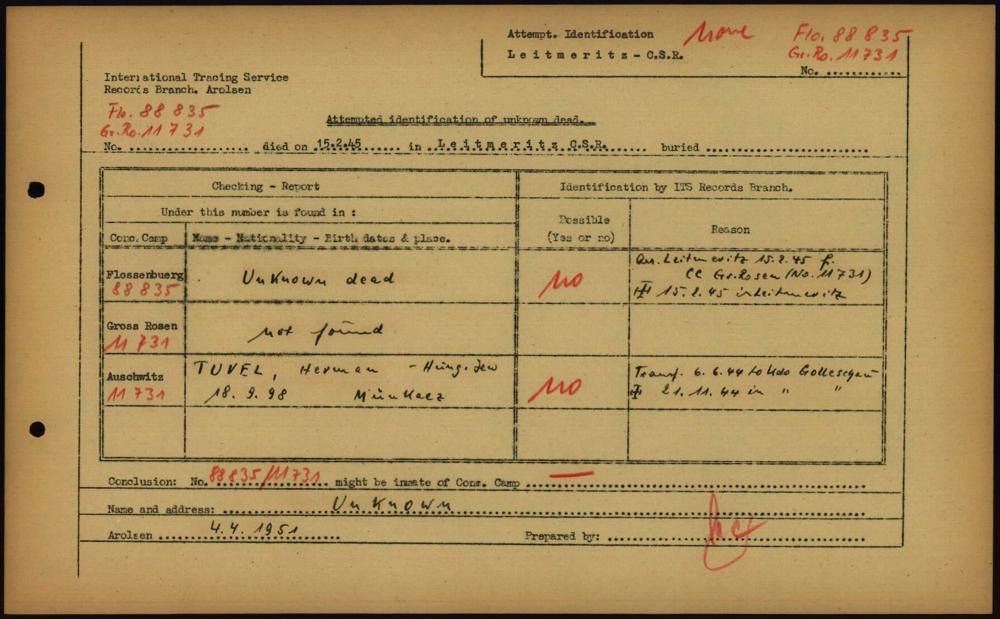 Attempt. Identification None Flo. 88 835
Leitmeritz - C.S.R. Gr.Ro. 11 731
No. ............
International Tracing Service
Records Branch, Arolsen
Flo. 88 835
Gr.Ro. 11 731
Attempted identification of unknown dead.
No. .................. died on 15.2.45 ...... in Leitmeritz C.S.R. ...... buried ........................
Checking - Report Identification by ITS Records Branch.
Under this number is found in : Possible (Yes or no) Reason
Conc. Camp Name - Nationality - Birth dates & place.
Flossenbuerg 88 835 Unknown dead no Leitmeritz 15.2.45 f. CC Gr.Rosen (No. 11731)
15.2.45 in Leitmeritz
Gross Rosen 11 731 not found
Auschwitz 11 731 TUVEL, Herman - Hung. Jew no Transf. 6.6.44 to Kdo Golleschau
18.9.98 Munkacz 21.11.44 in " "
Conclusion: No. 88835/11731 might be inmate of Conc. Camp —
Name and address: Unknown
Arolsen 4.4.1951 Prepared by: